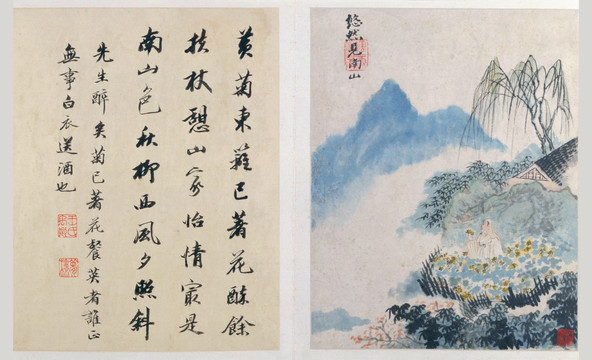 悠然
見南山
黃菊東籬已著花醉餘
扶杖憩山家怡情最是
南山色秋柳西風夕照斜
先生醉矣菊已著花餐英者誰正
無事白衣送酒也